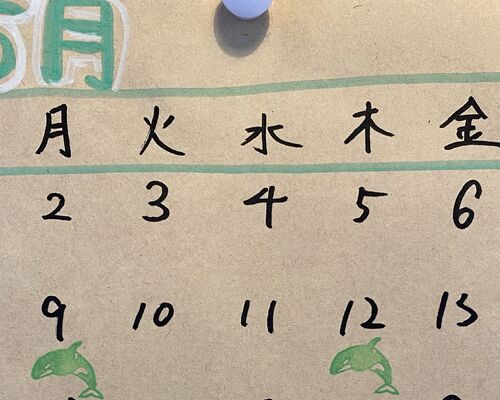 月
月 火 水 木 金
2 3 4 5 6
9 10 11 12 13